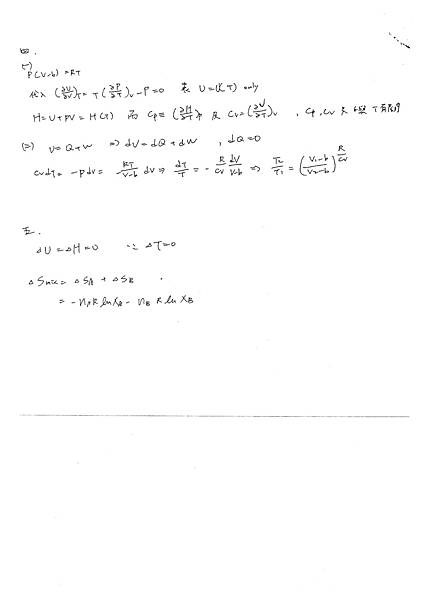 四.
(一)
P(V-b)=RT
代入 (∂U/∂V)_T = T(∂P/∂T)_V - P = 0 表 U=U(T) only
H=U+PV=H(T) 而 Cp=(∂H/∂T)_P 及 Cv=(∂U/∂T)_V , Cp, Cv 只與 T 有關
(二) U=Q+W ⇒ dU=dQ+dW , dQ=0
CvdT = -pdv = - RT/(V-b) dV ⇒ dT/T = - R/Cv dV/(V-b) ⇒ T2/T1 = ((V1-b)/(V2-b))^(R/Cv)
五.
ΔU=ΔH=0 ∵ ΔT=0
ΔSmix = ΔSA + ΔSB
= -nA R ln XA - nB R ln XB